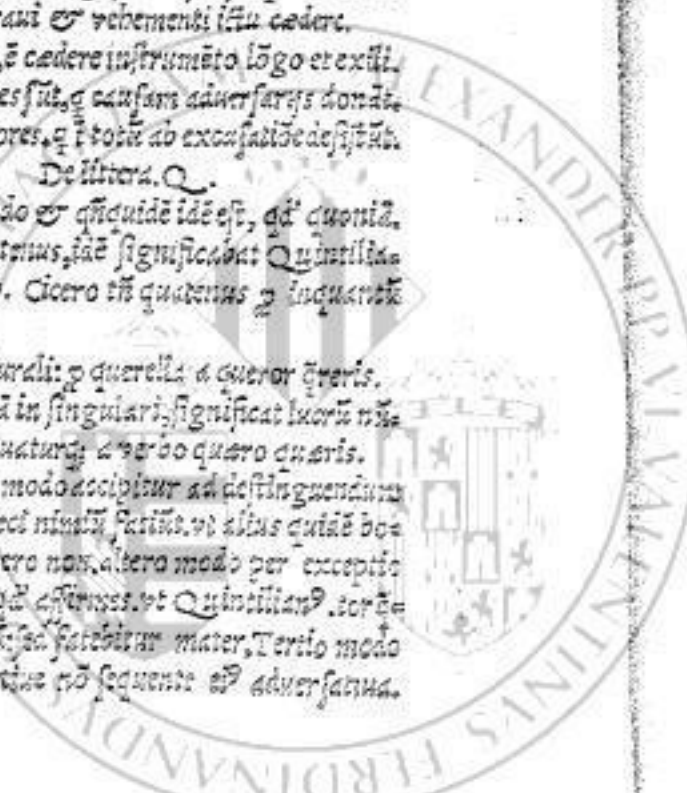 aui & vehementi ictu cædere.
ē cædere inſtrumēto lōgo et exili.
es ſūt, q̄ cauſam aduerſarijs donāt.
ores, q̄ ī totū ab excuſatiōe deſiſtūt.
De littera. Q.
do & qn̄quidē idē eſt, qd' quoniā.
tenus, idē ſignificabat Quintilia=
. Cicero tn̄ quatenus ꝓ inquantū
urali: ꝓ querella a queror q̄reris.
ā in ſingulari, ſignificat lucrū nū=
uaturq; a verbo quæro quæris.
modo accipitur ad deſtinguendum
nimiū vt alius quidē bo=
ero non, altero modo per exceptio
affirmes. vt Quintilianꝰ. tor=
ſed fatebitur mater, Tertio modo
que nō ſequente eiꝰ aduerſatiua.
ALEXANDER PP VI VALENTINVS FERDINANDVS